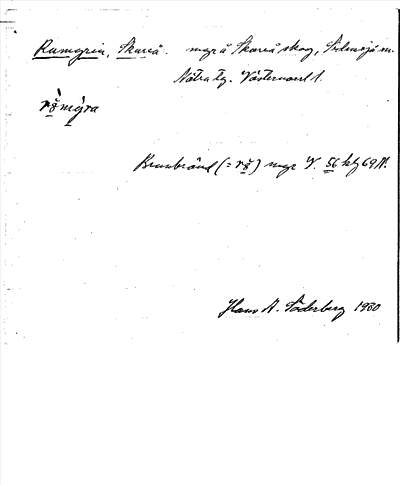 Ramyran, Skureå. myr å Skureå skog, Sidensjö sn.
Nätra tg. Västernorrl l.
råmýra
Brunbränd (= rå) myr V. 56 kbg 69 N.
Hans A. Söderberg 1930